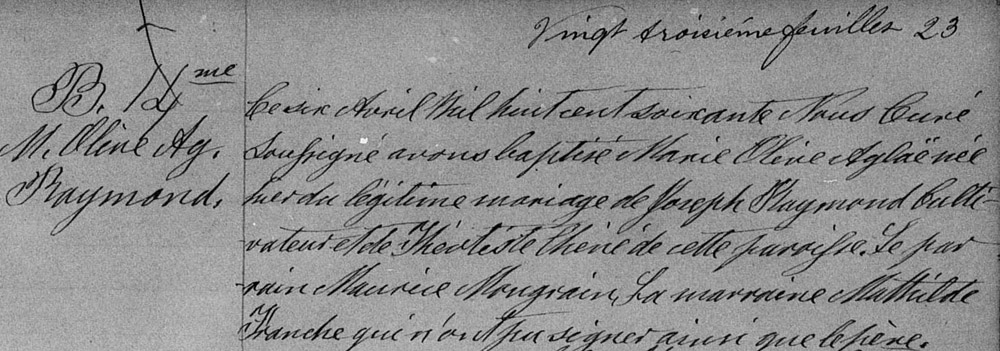 Vingt troisiéme feuillet 23
B. 14me
M. Olène Ag.
Raymond.
Ce six Avril Mil huit cent soixante Nous Curé
Soussigné avons baptisé Marie Olène Aglaë née
hier du légitime mariage de Joseph Raymond Culti-
vateur et de Théotiste Chêné de cette paroisse. Le par
rain Maurice Mongrain, La marraine Mathilde
Franche qui n'ont pu signer ainsi que le père.